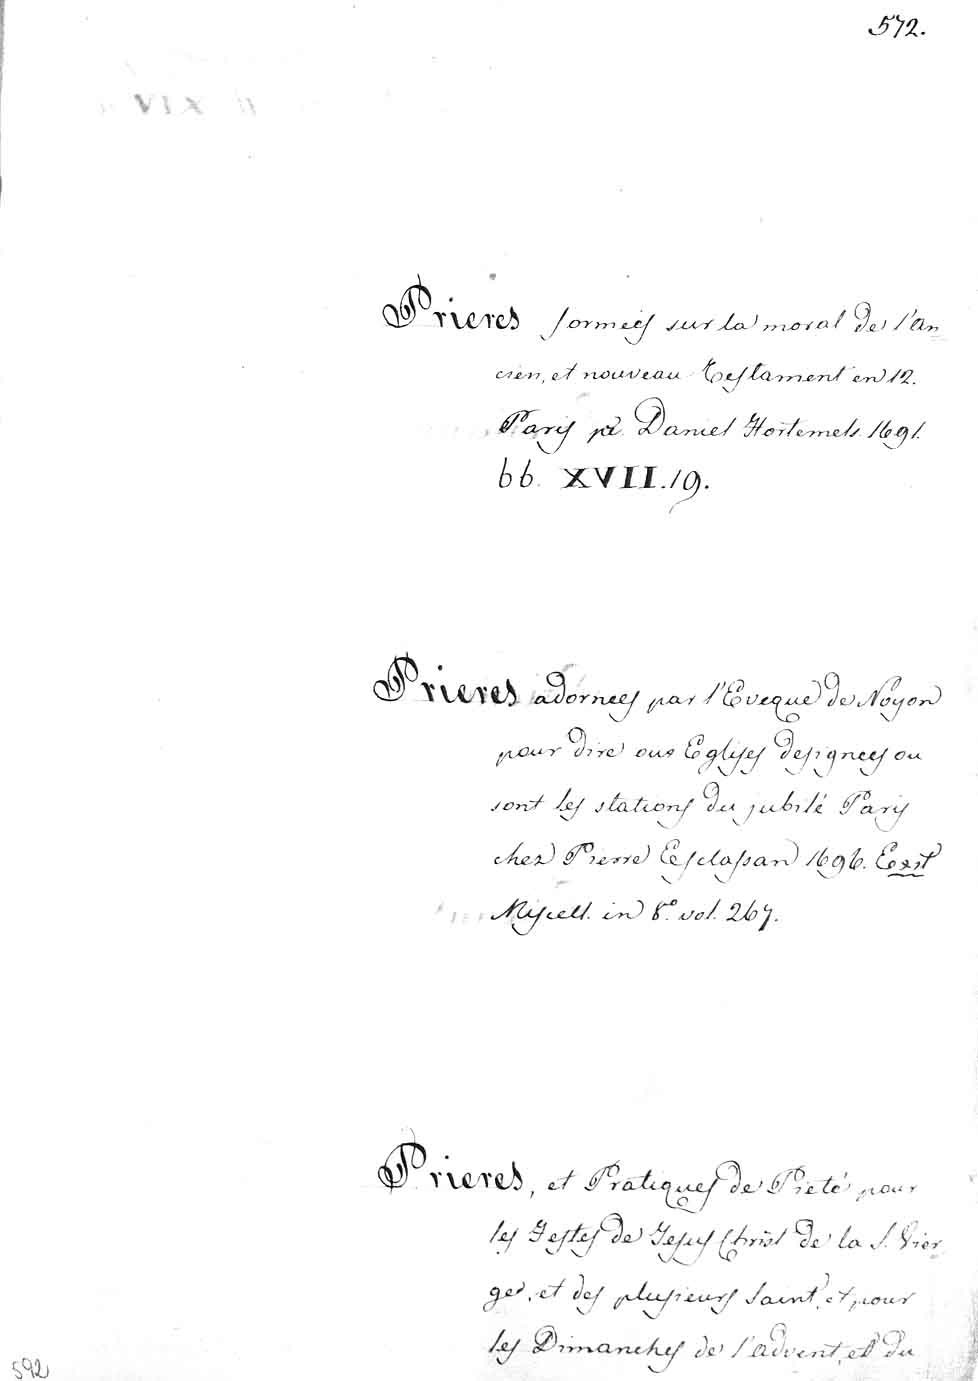 572.
Prieres formées sur la moral de l'an=
cien, et nouveau Testament en 12.
Paris pr. Daniel Hortemels. 1691.
bb. XVII. 19.
Prieres adornees par l'Eveque de Noyon
pour dire aux Eglises designees ou
sont les stations du jubilé Paris
chez Pierre Esclassan 1696. Exst
Miscell. in 8.° vol. 267.
Prieres, et Pratiques de Pieté pour
les Festes de Jesus Christ de la S. Vier=
ge, et des plusieurs Saint, et pour
les Dimanches de l'advent, et du
592